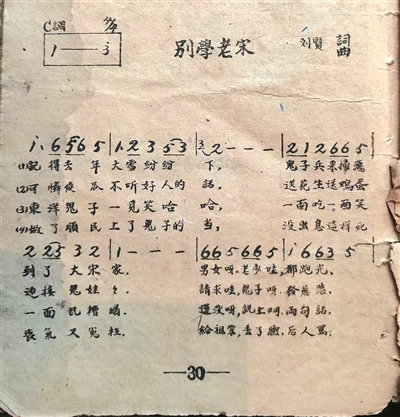 C調 4/4
1——3
別學老宋
刘賢 詞曲
1·6565|1·235 3|2———|212665|
(1)記得去年大雪紛紛下, 鬼子兵来掃蕩
(2)可憐傻瓜不听好人的話, 送花生送鳴蛋
(3)東洋鬼子一見笑哈哈, 一面吃一面笑
(4)做了順民上了鬼子的當, 沒出息這样死
2 2532|1———|665665|16635
到了大宋家. 男女呀,老少哇,都跑光,
迎接鬼娃々. 請求哇,鬼子呀,發慈悲,
一面乱糟塌. 還沒呀,説上呵,兩句話,
喪氣又冤枉. 給祖宗,丢了臉,后人罵,
—30—